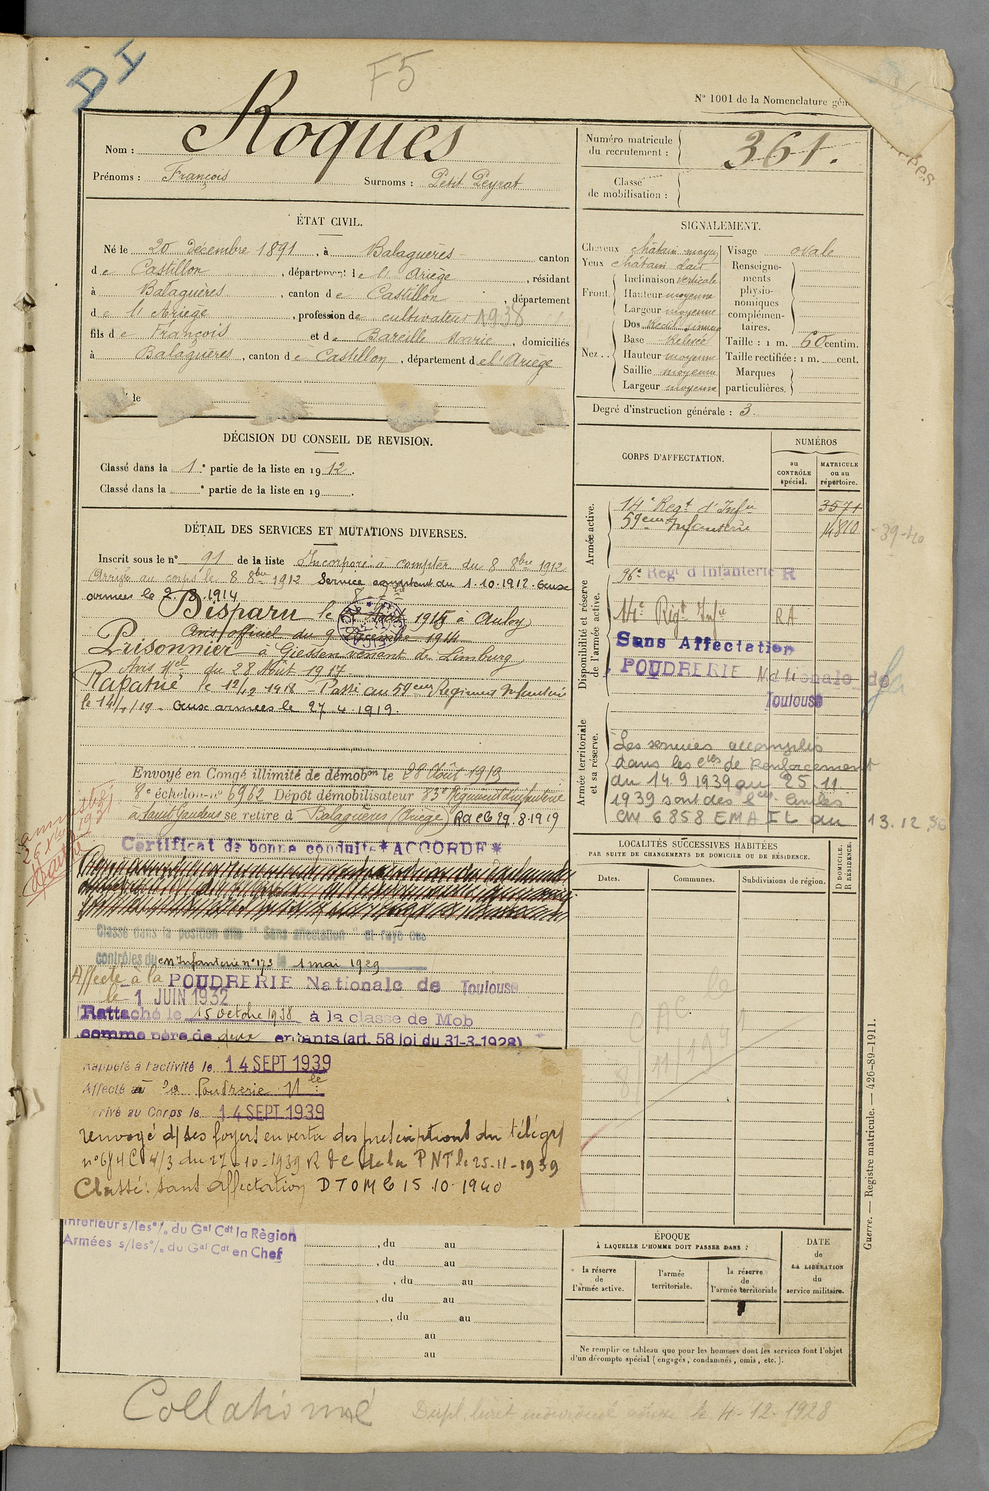 DI
F5
N° 1001 de la Nomenclature géné
Nom : Roques
Prénoms : François Surnoms : Petit Peyrat
Numéro matricule du recrutement : 361.
Classe de mobilisation :
ÉTAT CIVIL.
Né le 20 décembre 1891, à Balaguères canton
de Castillon, département de l'Ariège, résidant
à Balaguères, canton de Castillon, département
de l'Ariège, profession de cultivateur 1938
fils de François et de Bareille Marie, domiciliés
à Balaguères, canton de Castillon, département de l'Ariège
de
SIGNALEMENT.
Cheveux châtain moyen
Yeux châtain clair
Front
Inclinaison verticale
Hauteur moyenne
Largeur moyenne
Nez
Dos Rectil. sinueux
Base Relevée
Hauteur moyenne
Saillie moyenne
Largeur moyenne
Visage ovale
Renseignements physionomiques complémentaires.
Taille : 1 m. 60 centim.
Taille rectifiée : 1 m. cent.
Marques particulières.
Degré d'instruction générale : 3.
DÉCISION DU CONSEIL DE REVISION.
Classé dans la 1e partie de la liste en 1912.
Classé dans la e partie de la liste en 19 .
DÉTAIL DES SERVICES ET MUTATIONS DIVERSES.
Inscrit sous le n° 91 de la liste Incorporé à compter du 8 8bre 1912
Arrivé au corps le 8 8bre 1912 Service comptant du 1.10.1912. Aux
armées le 2.8.1914
Disparu le Août 1914 à Auloy
Avis officiel du 9 Décembre 1914
Prisonnier à Giessen venant de Limburg
Avis Mel du 28 Août 1917
Rapatrié le 12/12 1918 - Passé au 59eme Régiment Infanterie
le 14/1/19. Aux armées le 27.4.1919.
Envoyé en Congé illimité de démobon le 28 Août 1919
8e échelon n° 6962 Dépôt démobilisateur 83e Régiment d'infanterie
à Saint Gaudens se retire à Balaguères (Ariège) RdC le 29.8.1919
Certificat de bonne conduite *ACCORDÉ*
Classé dans la position dite "Sans affectation" et rayé des
contrôles du cm Infanterie n° 173 le 1 mai 1929
Affecté à la POUDRERIE Nationale de Toulouse
le 1 JUIN 1932
Rattaché le 15 octobre 1938 à la classe de Mob
comme père de deux enfants (art. 58 loi du 31-3-1928)
Rappelé à l'activité le 14 SEPT 1939
Affecté à la Poudrerie Nle
Arrivé au Corps le 14 SEPT 1939
renvoyé d/ ses foyers en vertu des prescriptions du télég/
n° 6/4 C 4/3 du 27-10-1939 R de C de la PNT le 25-11-1939
Classé: sans affectation DTOMC 15.10.1940
Intérieur s/les °/. du Gal Cdt la Région
Armées s/les °/. du Gal Cdt en Chef
, du au
, du au
, du au
, du au
, du au
au
au
CORPS D'AFFECTATION.
NUMÉROS
au CONTRÔLE spécial.
MATRICULE ou au répertoire.
Armée active.
14e Regt d'Infie 3571
59eme Infanterie 14810
39-40
Disponibilité et réserve de l'armée active.
96e Regt d'Infanterie R
14e Régt Infie RA
Sans Affectation
POUDRERIE Nationale de
Toulouse
Armée territoriale et sa réserve.
Les services accomplis
dans les cies de Renforcement
du 14.9.1939 au 25.11
1939 sont des Sces Civiles
CM 6858 EMA IL du 13.12.56
LOCALITÉS SUCCESSIVES HABITÉES
PAR SUITE DE CHANGEMENTS DE DOMICILE OU DE RÉSIDENCE.
Dates.
Communes.
Subdivisions de région.
D DOMICILE.
R RÉSIDENCE.
CAC le
8/11/1941
ÉPOQUE
À LAQUELLE L'HOMME DOIT PASSER DANS :
la réserve de l'armée active.
l'armée territoriale.
la réserve de l'armée territoriale
DATE de LA LIBÉRATION du service militaire.
Ne remplir ce tableau que pour les hommes dont les services font l'objet
d'un décompte spécial (engagés, condamnés, omis, etc.).
Guerre. — Registre matricule. — 426-89-1911.
Collationné
Dupl. livret individuel le 4-12-1928